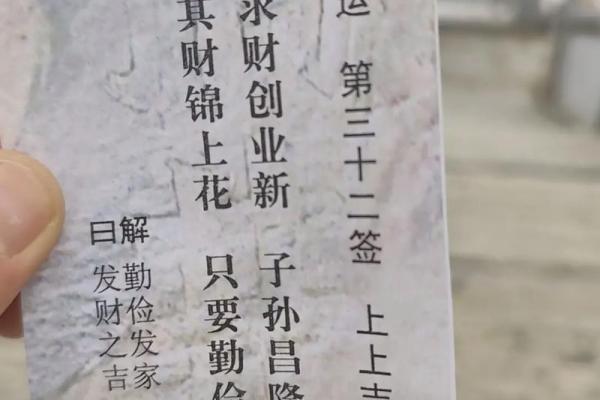 运 第三十二签 上上吉
求财创业新 子孙昌隆
其财锦上花 只要勤俭
解曰
勤俭发家
发财之吉